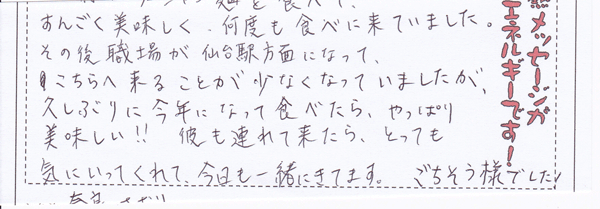 麺を食べて、
すんごく美味しく、何度も食べに来ていました。
その後職場が仙台駅方面になって、
こちらへ来ることが少なくなっていましたが、
久しぶりに今年になって食べたら、やっぱり
美味しい!! 彼も連れて来たら、とっても
気にいってくれて、今日も一緒にきてます。 ごちそう様でした!
メッセージが
エネルギーです!